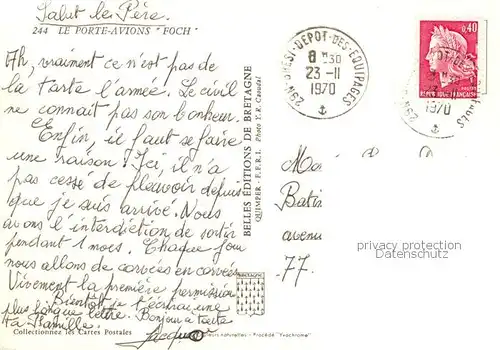 Salut le Père.
244 LE PORTE-AVIONS "FOCH"
Ah, vraiment ce n'est pas de
la tarte l'armée. Le civil
ne connait pas son bonheur.
Enfin, il faut se faire
une raison. Ici, il n'a
pas cessé de pleuvoir depuis
que je suis arrivé. Nous
avons l'interdiction de sortir
pendant 1 mois. Chaque jour
nous allons de corvées en corvées
Vivement la première permission
Bientôt je t'écrirai une
plus longue lettre. Bonjour à toute
ta famille.
Jacques
Collectionnez les Cartes Postales
BELLES ÉDITIONS DE BRETAGNE
QUIMPER - F.F.R.I. Photo
BRETAGNE
Couleurs naturelles - Procédé "Yvachrome"
29N BREST-DEPOT-DES-EQUIPAGES
8 H30
23-11
1970
0,40
REPUBLIQUE FRANCAISE
1970
29N
Batim
avenu
77.
privacy protection
Datenschutz